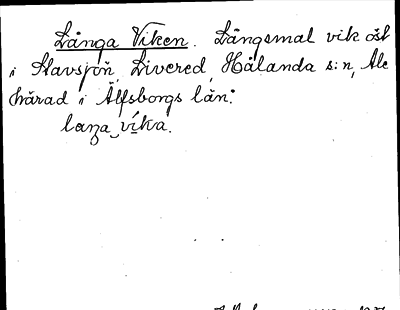 Långa Viken. Långsmal vik öst
i Stavsjön, Livered, Hålanda s:n, Ale
härad i Älfsborgs län.
laŋa vika.